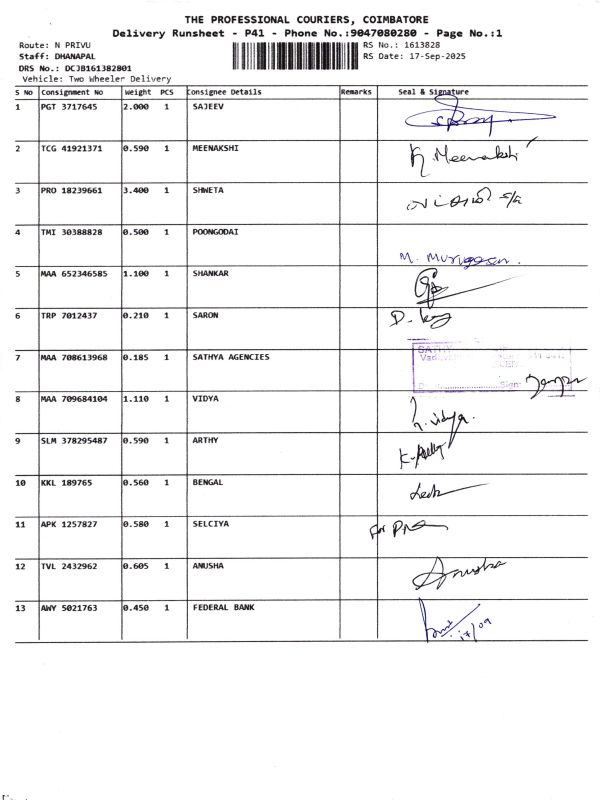 THE PROFESSIONAL COURIERS, COIMBATORE
Delivery Runsheet - P41 - Phone No.:9047080280 - Page No.:1
Route: N PRIVU RS No.: 1613828
Staff: DHANAPAL RS Date: 17-Sep-2025
DRS No.: DCJB161382801
Vehicle: Two Wheeler Delivery
S No Consignment No Weight PCS Consignee Details Remarks Seal & Signature
1 PGT 3717645 2.000 1 SAJEEV
2 TCG 41921371 0.590 1 MEENAKSHI
K. Meenakshi
3 PRO 18239661 3.400 1 SHWETA
4 TMI 30388828 0.500 1 POONGODAI
M. Murugesan.
5 MAA 652346585 1.100 1 SHANKAR
6 TRP 7012437 0.210 1 SARON
7 MAA 708613968 0.185 1 SATHYA AGENCIES
8 MAA 709684104 1.110 1 VIDYA
vidya.
9 SLM 378295487 0.590 1 ARTHY
10 KKL 189765 0.560 1 BENGAL
11 APK 1257827 0.580 1 SELCIYA
For
12 TVL 2432962 0.605 1 ANUSHA
Anusha
13 AWY 5021763 0.450 1 FEDERAL BANK
17/09